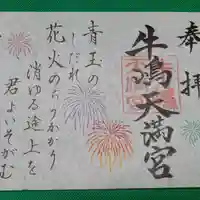 奉拝
牛嶋天満宮
青玉の
しだれ
花火のちりかかり
消ゆる途上を
君よいそがむ